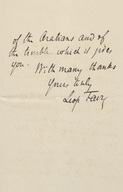 of the Arabians and of
the trouble which it gives
you. With many thanks
Yours truly